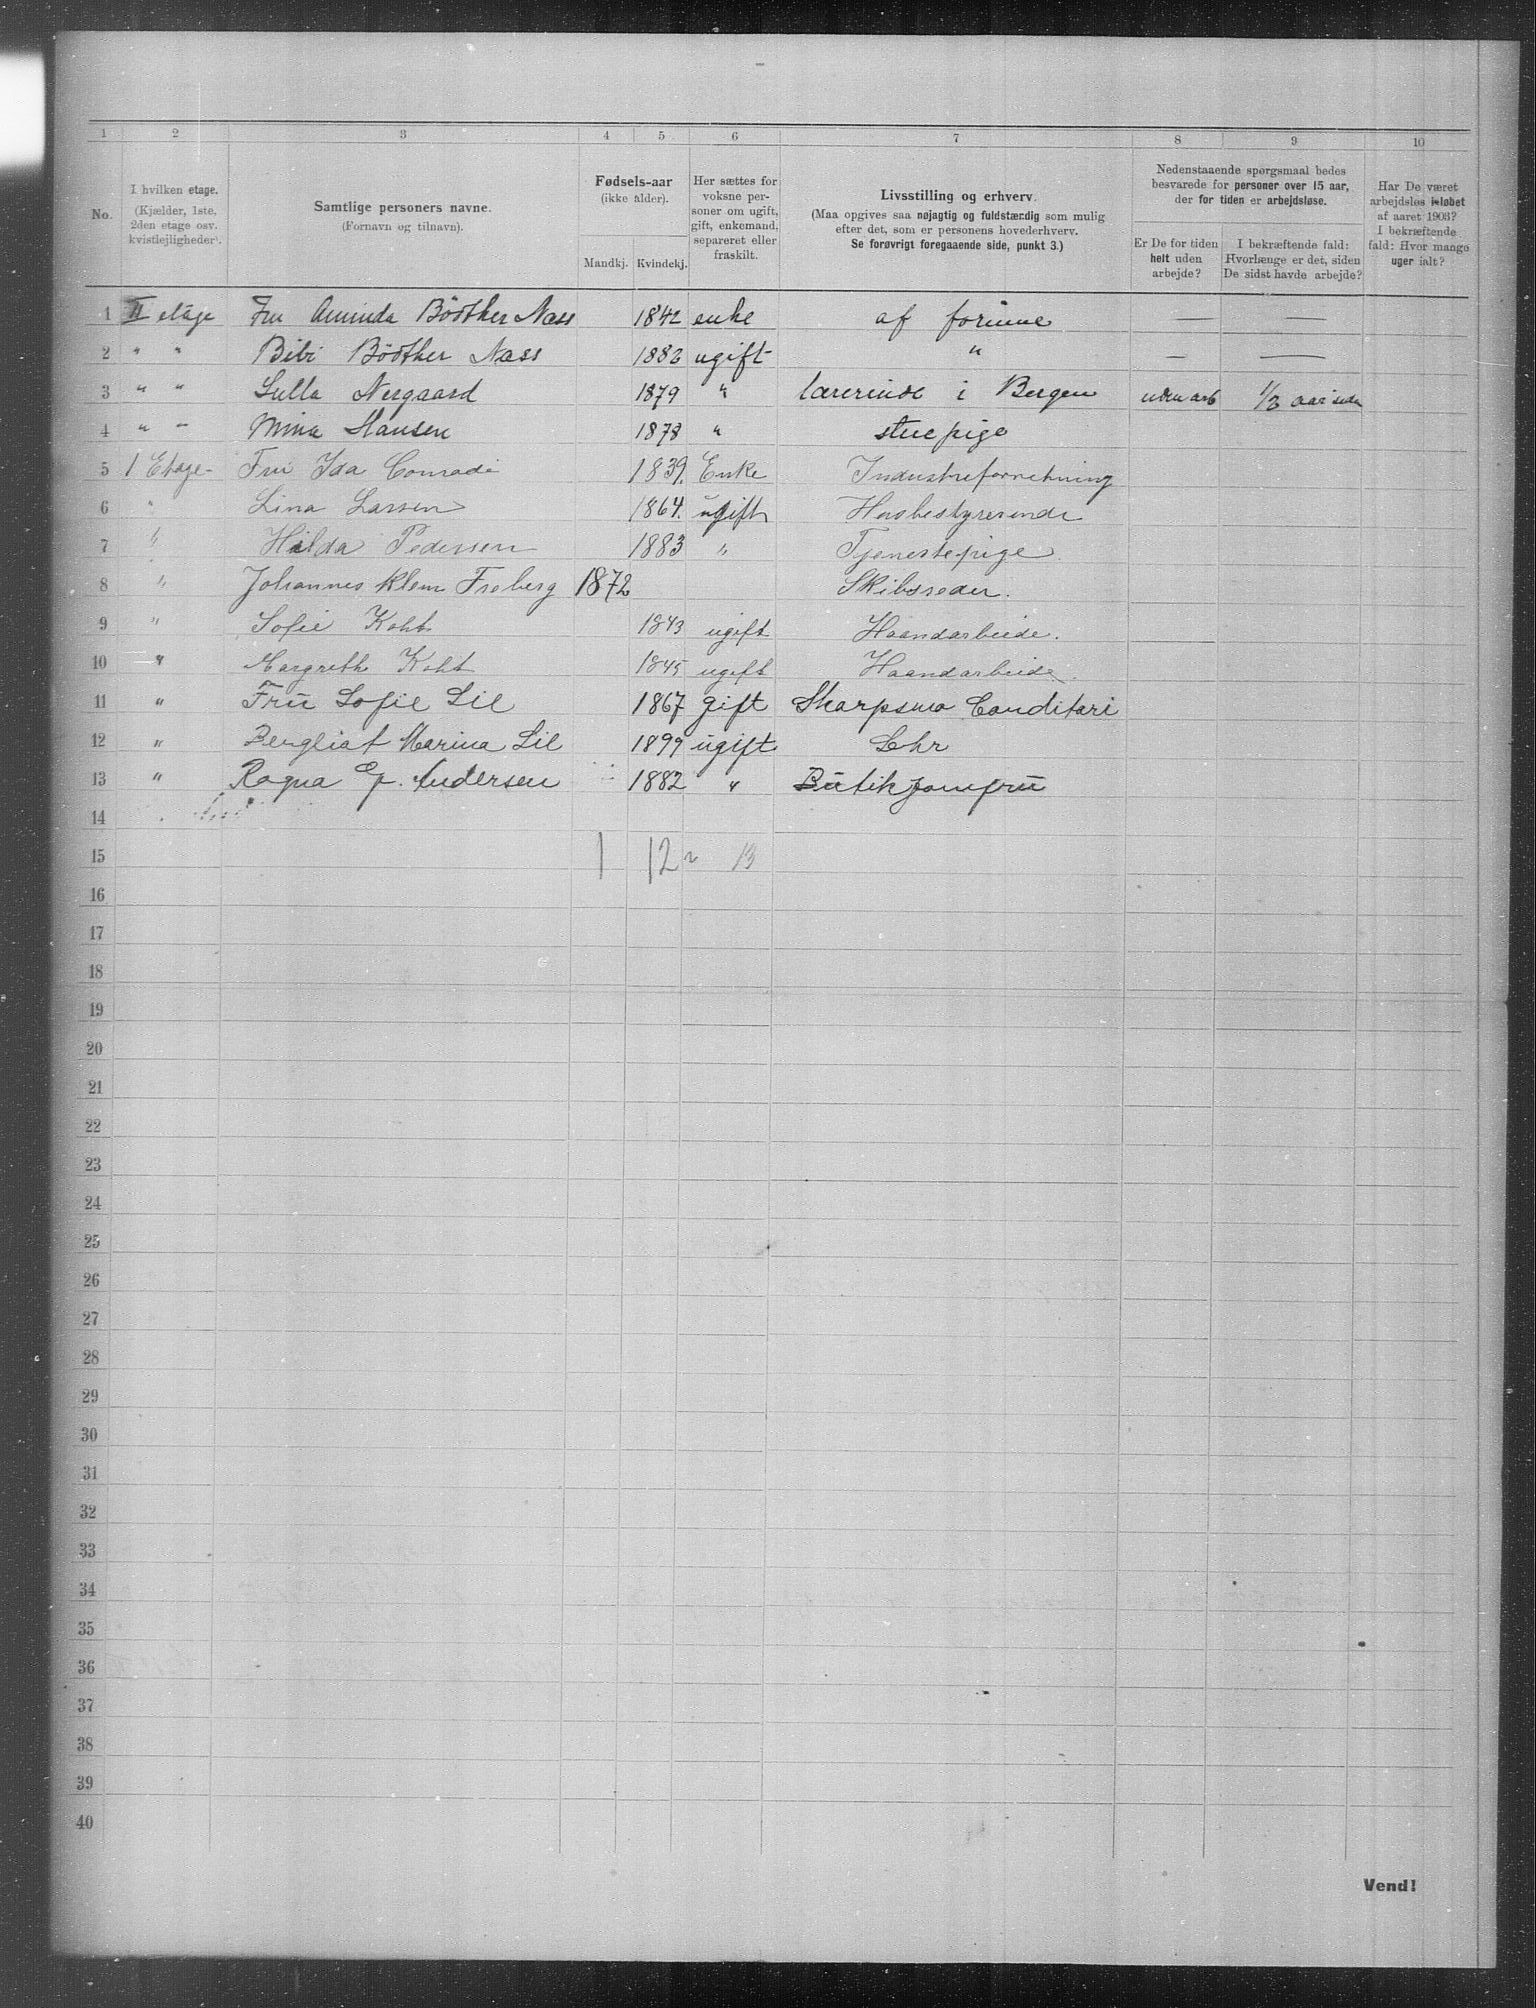 1 2 3 4 5 6 7 8 9 10
No.
I hvilken etage.
(Kjælder, 1ste, 2den etage osv. kvistlejligheder).
Samtlige personers navne.
(Fornavn og tilnavn).
Fødsels-aar
(ikke alder).
Mandkj. Kvindekj.
Her sættes for voksne personer om ugift, gift, enkemand, separeret eller fraskilt.
Livsstilling og erhverv.
(Maa opgives saa nøjagtig og fuldstændig som mulig efter det, som er personens hovederhverv.
Se forøvrigt foregaaende side, punkt 3.)
Nedenstaaende spørgsmaal bedes besvarede for personer over 15 aar, der for tiden er arbejdsløse.
Er De for tiden helt uden arbejde?
I bekræftende fald: Hvorlænge er det, siden De sidst havde arbejde?
Har De været arbejdsløs i løbet af aaret 1903? I bekræftende fald: Hvor mange uger ialt?
1 II etage Fru Aminda Böðther Næss 1842 enke af formue — —
2 " " Bibi Böðther Næss 1882 ugift " — —
3 " " Sulla Nergaard 1879 " lærerinde i Bergen uden arb 1/2 aar siden
4 " " Mina Hansen 1878 " stuepige
5 1 Etage Fru Ida Conradi 1839. Enke Industriforretning
6 " Lina Larsen 1864. ugift Husbestyrerinde
7 " Hilda Pedersen 1883 " Tjenestepige
8 " Johannes Klem Froberg 1872 Skibsreder.
9 " Sofie Koht 1843 ugift Haandarbeide.
10 " Margreth Koht 1845 ugift Haandarbeide.
11 " Fru Sofie Lie 1867 gift Skarpsmo Conditari
12 " Bergliot Marina Lie 1899 ugift
13 " Ragna G. Andersen 1882 " Butikjomfru
14
15 1 12 13
16
17
18
19
20
21
22
23
24
25
26
27
28
29
30
31
32
33
34
35
36
37
38
39
40
Vend!